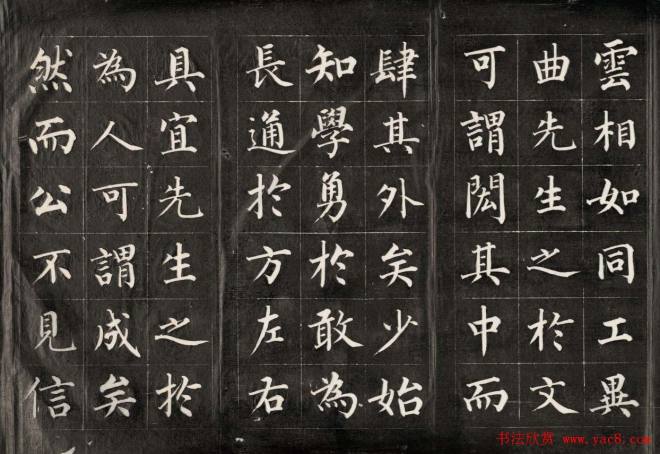 雲相如同工異
曲先生之於文
可謂閎其中而
肆其外矣少始
知學勇於敢為
長通於方左右
具宜先生之於
為人可謂成矣
然而公不見信
书法欣赏 www.yac8.com